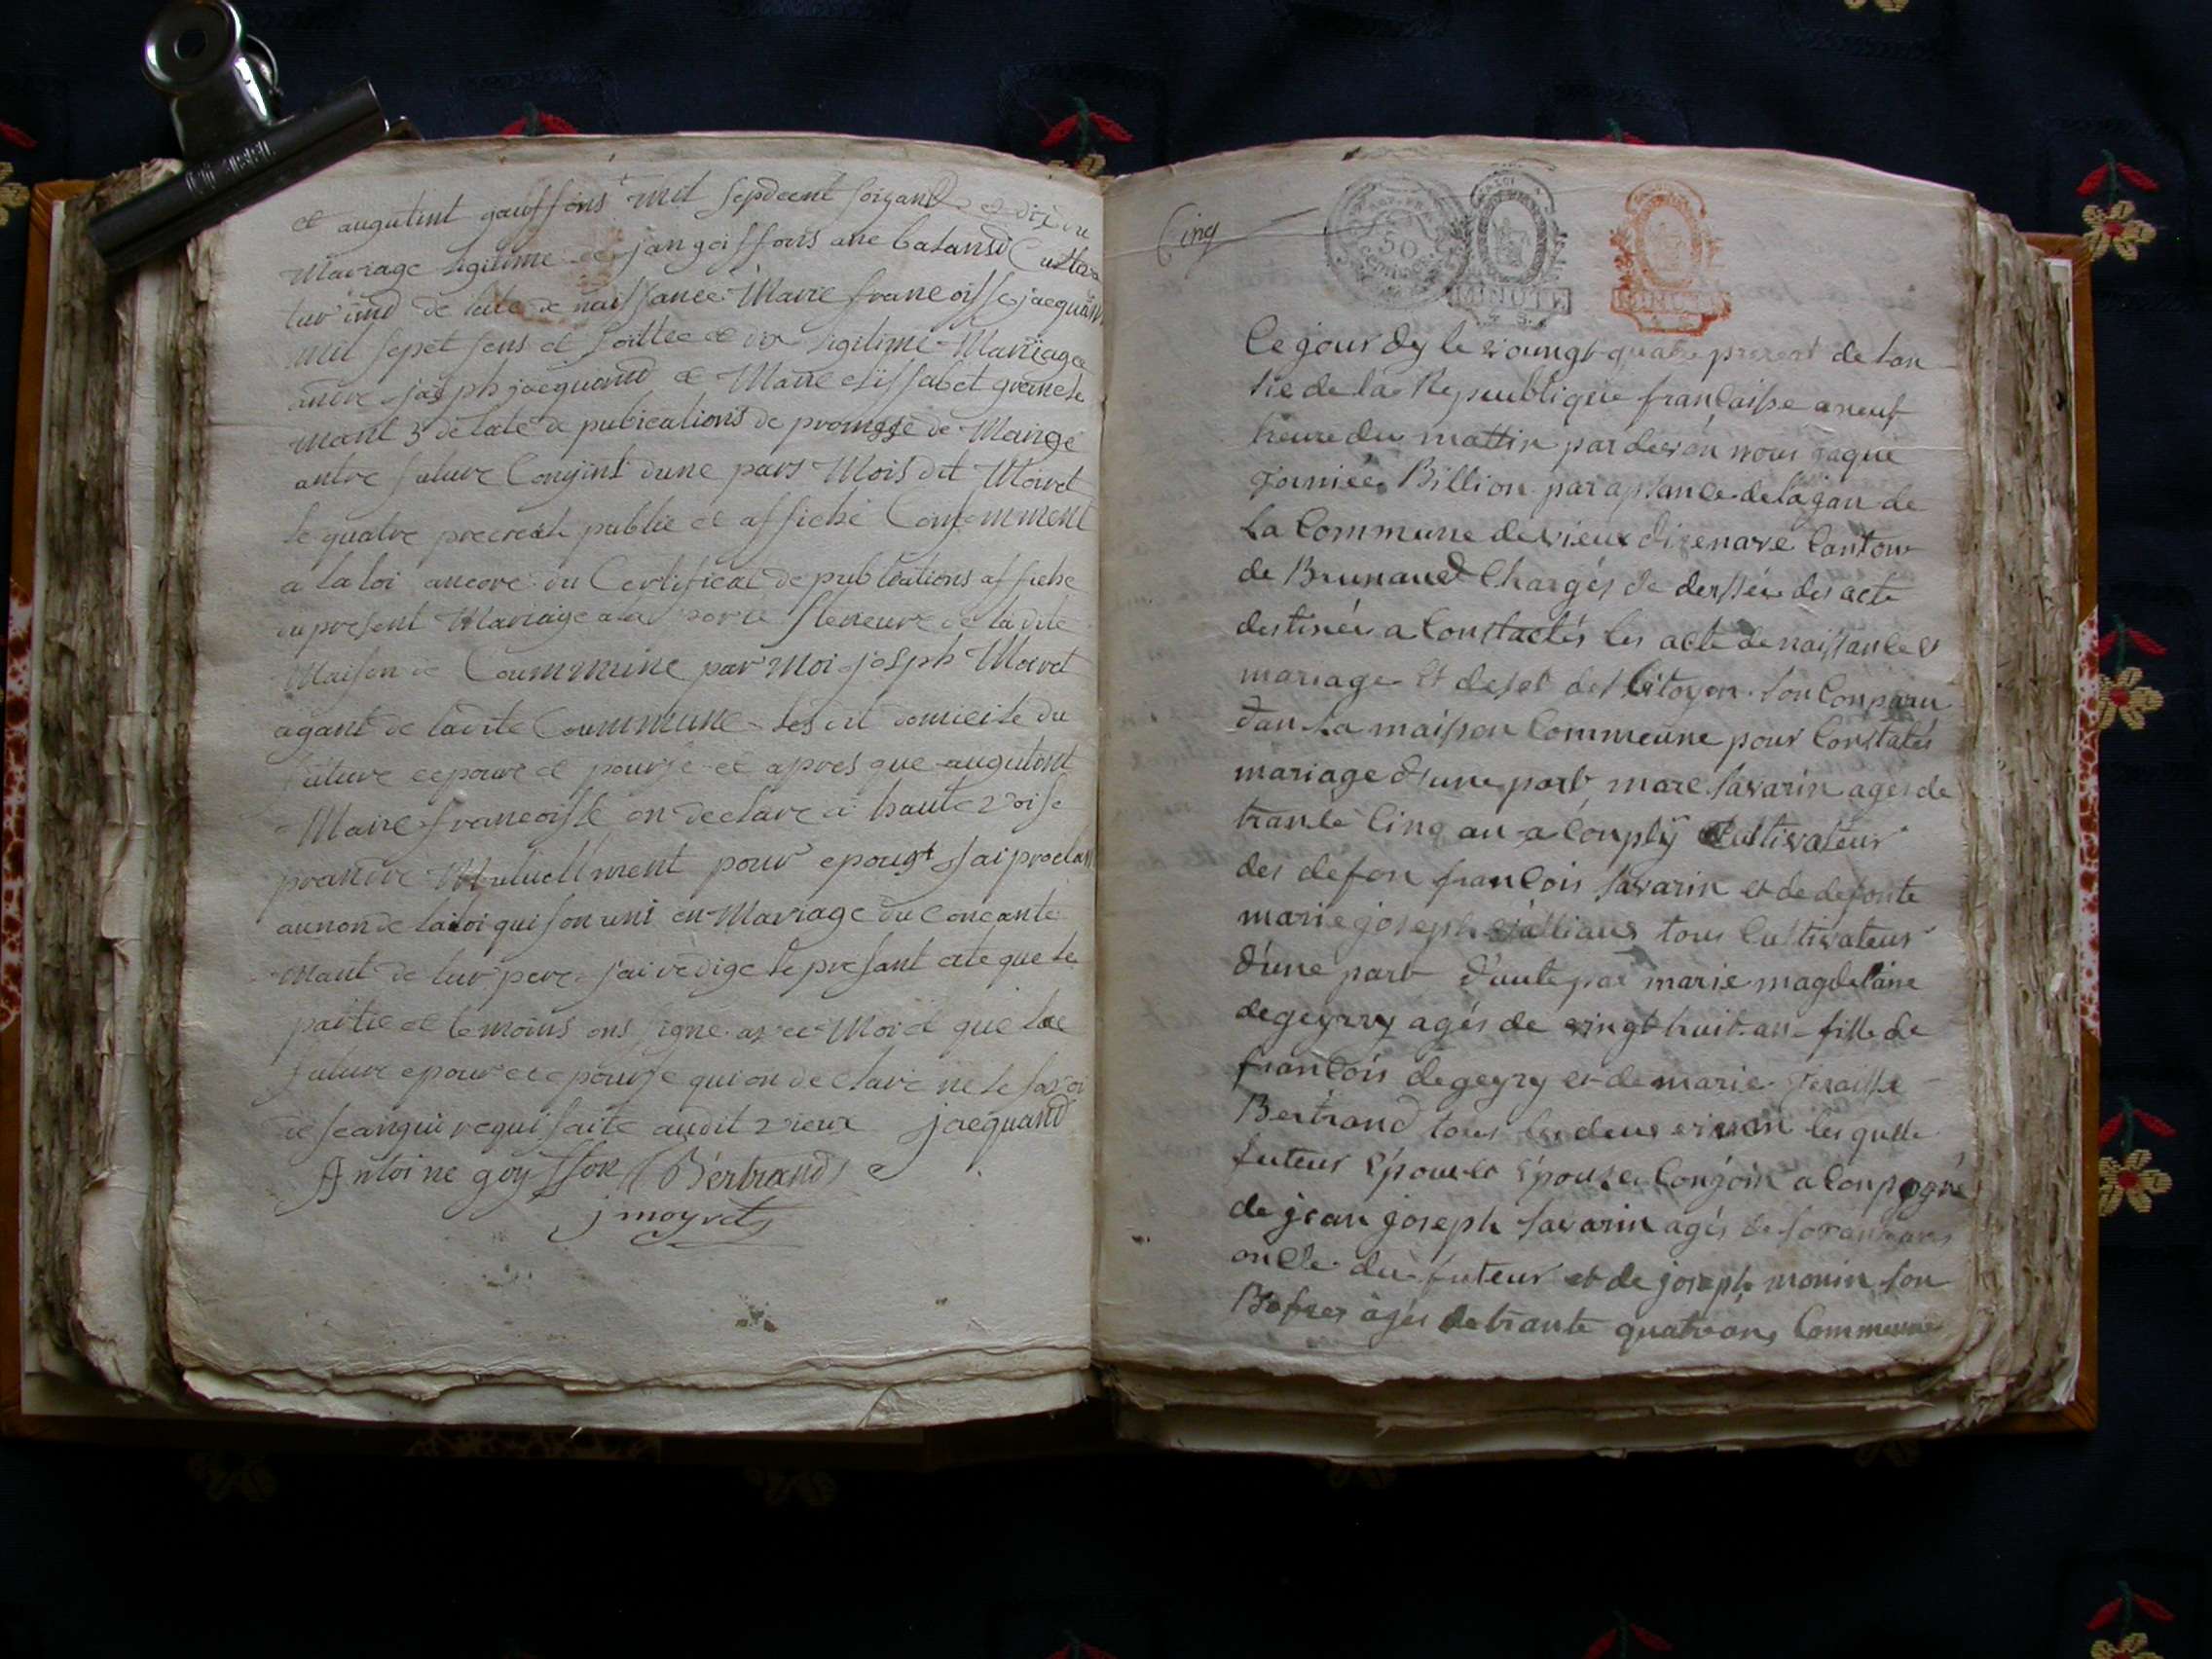 et augutint gouffons mil sepdcent soizant et dix du
Mariage ligitime de jan goiffons ane batand Culteva
tur imd de late de naissance Marie francoisse jacquan
mil sepet sens et soittee et dix ligitime Mariage
andre josph jacquand et Marie elissabet grene le
mant 3 de late de pubications de promgse de Mairge
antre future Conjint dune pars Mois dit Moiret
le quatre precrest publie et affiche Comfemment
a la loi ancore du Certificat de publications affiche
du present Mariage a la porte steneure de ladite
Maison de Coummune par Moi josph Moiret
agant de ladite Coummune les dit domicile du
future epour et pourse et apres que augutint
Marie francoisse on declare a haute voise
prandre Mutuellment pour epougt jai proclam
aunon de la loi qui son uni en Mariage du Concante
mant de lur pere jai redige le presant ate que le
partie et temoins ons signe avec Moi et que lae
future epour et epourse qui on declare ne le savoi
de se anqui requi faite audit vieux jacquand
Antoine goyffon Bertrand
j moyret
Cinq
50 Centimes
MINUTE
Ce jour dy le voungt quatre prererl de lan
sie de la Republique francaisse a neuf
heure du mattin par devan nous jaque
Joiniée Billion par apsance de lajan de
la Commune de vieux dizenave Canton
de Brunaud Chargés de dersséu des acte
destinéu a Constactés les acte de naissance et
mariage Et deset des Citoyon son Conparu
dan la maison Commeune pour Constatés
mariage d'une part marc savarin ages de
trante Cinq an a Conplÿ Cultivateur
des defon francois savarin et de defonte
marie joseph vulliaus tous Cultivateur
d'une part d'aute par marie magdelaine
degeyrry agés de vingt huit an fille de
francois degeyry et de marie Teraisse
Bertrand tous les deux vivan les quelle
futeur Epoux et Epouse Conjoin a Conpagné
de jean joseph savarin agés de soixante ans
oncle du futeur et de joseph monin son
Bofrer àgés de trante quatre ans Commeune